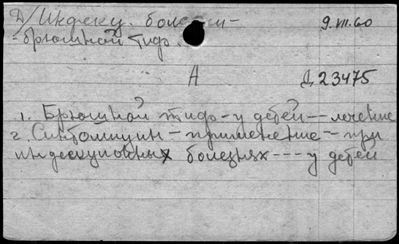 Д/ Инфекц. болезни- 9.VII.60
-брюшной тиф.
А Д 23475
1. Брюшной тиф-у детей--лечение
2. Синтомицин-применение-при
инфекционных болезнях---у детей